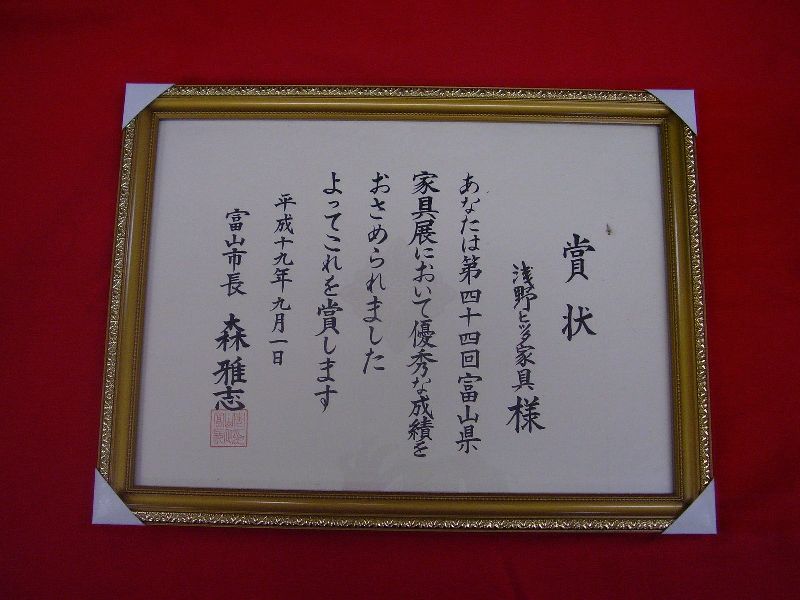 賞状
浅野ヒツタ家具 様
あなたは第四十四回富山県
家具展において優秀な成績を
おさめられました
よってこれを賞します
平成十九年九月一日
富山市長 森雅志